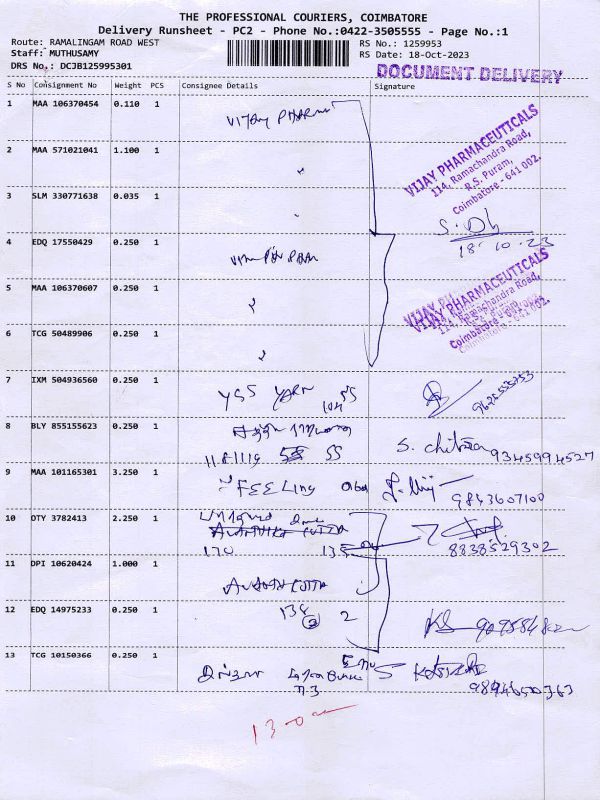 THE PROFESSIONAL COURIERS, COIMBATORE
Delivery Runsheet - PC2 - Phone No.:0422-3505555 - Page No.:1
Route: RAMALINGAM ROAD WEST
RS No.: 1259953
Staff: MUTHUSAMY
RS Date: 18-Oct-2023
DRS No.: DCJB125995301
DOCUMENT DELIVERY
S No Consignment No Weight PCS Consignee Details Signature
1 MAA 106370454 0.110 1
VIJAY PHARM
VIJAY PHARMACEUTICALS
114, Ramachandra Road,
R.S. Puram,
Coimbatore - 641 002.
2 MAA 571021041 1.100 1
3 SLM 330771638 0.035 1
18-10-23
4 EDQ 17550429 0.250 1
VIJAY PHARMACEUTICALS
114, Ramachandra Road,
R.S. Puram,
Coimbatore - 641 002.
5 MAA 106370607 0.250 1
6 TCG 50489906 0.250 1
7 IXM 504936560 0.250 1
YSS YARN
8 BLY 855155623 0.250 1
S. Chitra 9345994527
9 MAA 101165301 3.250 1
FEELing
9843607100
10 OTY 3782413 2.250 1
8838529302
11 DPI 10620424 1.000 1
12 EDQ 14975233 0.250 1
2
13 TCG 10150366 0.250 1
9894650363